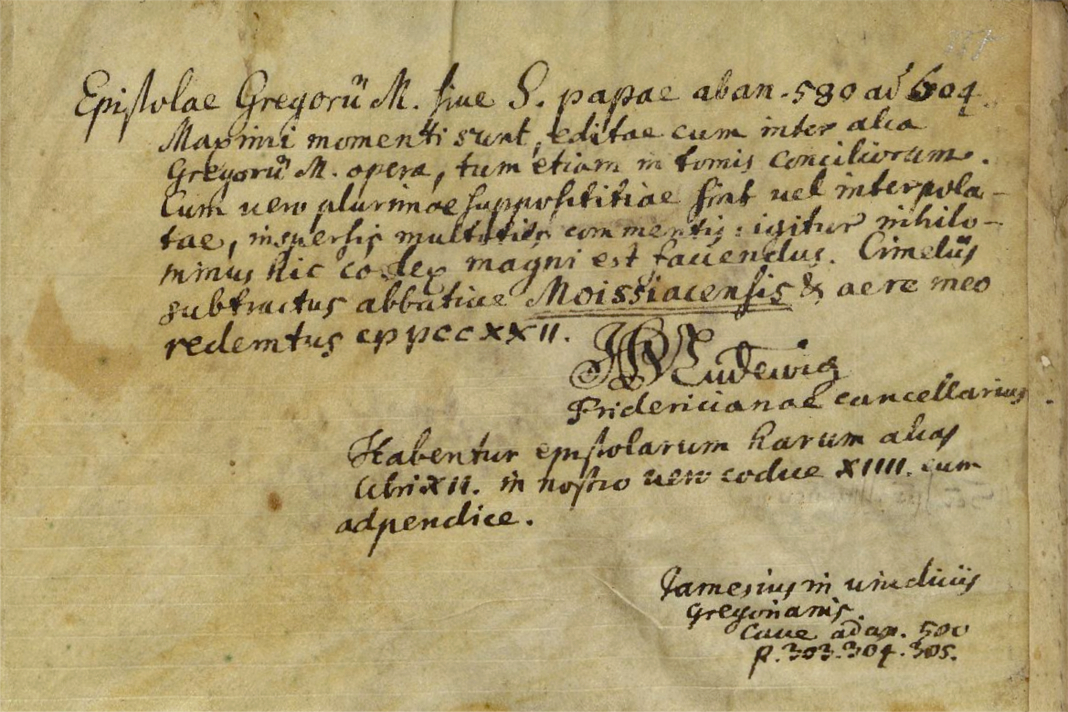 Epistolae Gregorii M. siue S. papae ab an. 580 ad 604.
Maximi momenti sunt, editae cum inter alia
Gregorii M. opera, tum etiam in tomis conciliorum.
Cum uero plurimae supposititiae sint uel interpola-
tae, insuersis commentis: igitur nihilo-
minus hic codex magni est faciendus. Cimeliis
subtractus abbatiae Moissiacensis & aere meo
redemtus
Ludewig
Fridericianae cancellarius
Habentur epistolarum harum alias
libri XII. in nostro uero codice XIIII. cum
adpendice.
Jamesius in uindiciis
Gregorianis.
Caue ad an. 590
p. 303. 304. 305.